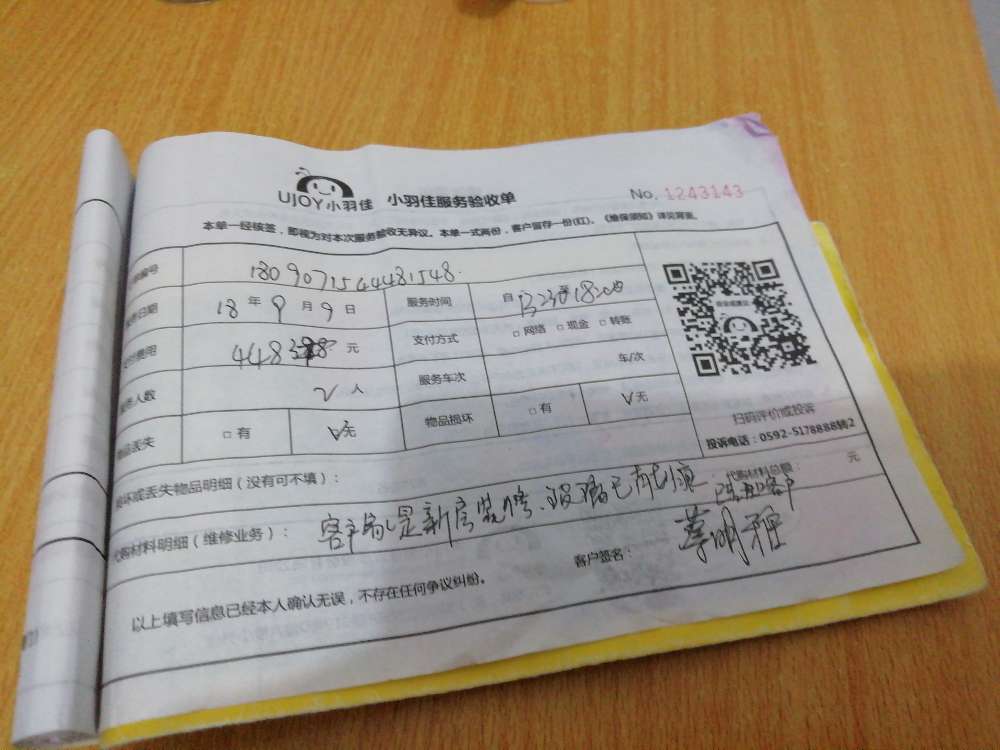 UJOY小羽佳 小羽佳服务验收单 No. 1243143
本单一经核签，即视为对本次服务验收无异议。本单一式两份，客户留存一份(红)。《维保须知》详见背面。
编号 1809071544481548
日期 18 年 9 月 9 日 服务时间 自 至18:00
费用 448 元 支付方式 □ 网络 □ 现金 □ 转账
人数 2 人 服务车次 车/次
物品丢失 □ 有 ☑无 物品损坏 □ 有 ☑无
扫码评价或投诉
投诉电话：0592-5178888转2
损坏或丢失物品明细（没有可不填）：
代购材料总额： 元
代购材料明细（维修业务）： 客户家是新房装修、玻璃已有划痕 客户
以上填写信息已经本人确认无误，不存在任何争议纠纷。 客户签名：